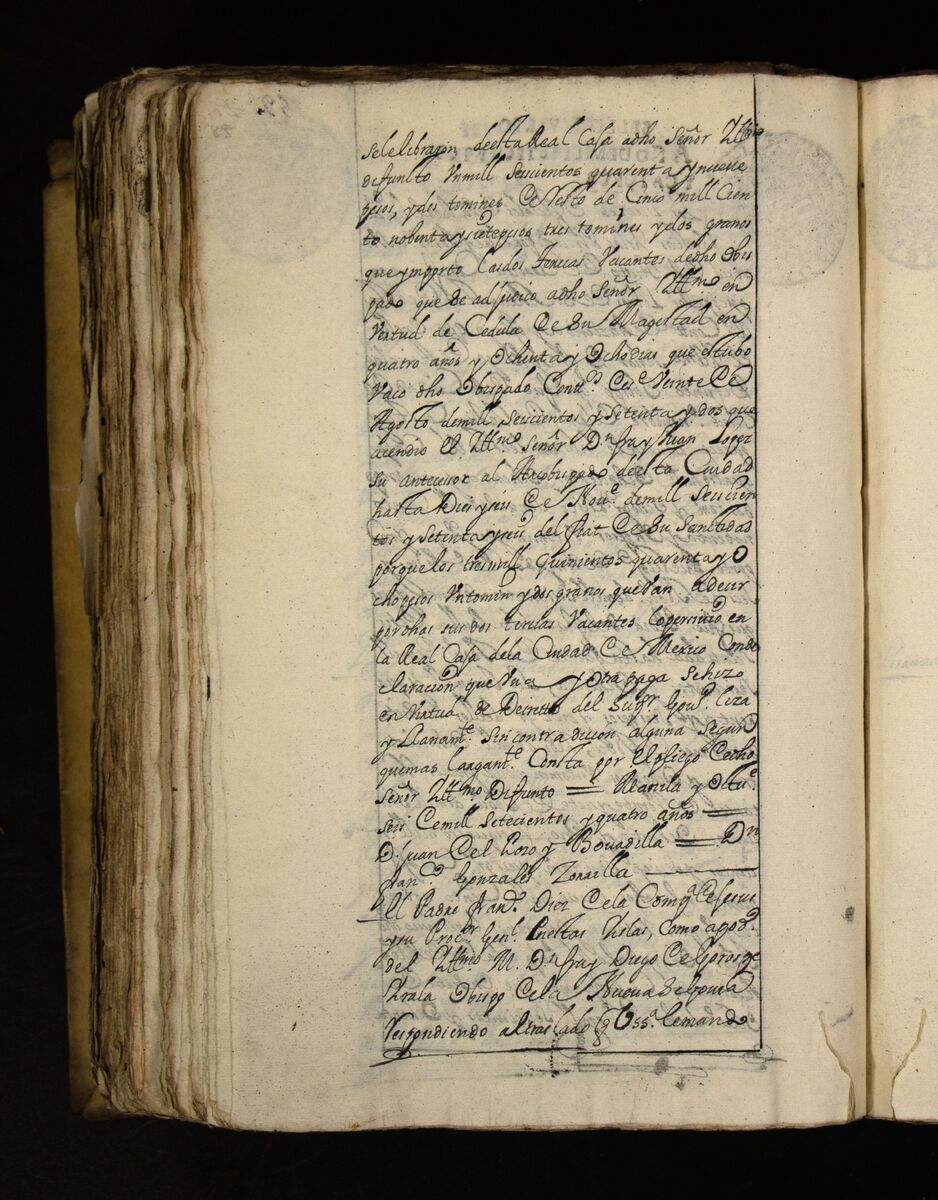 se le libraron de esta Real Casa a dho Señor Illmo
difunto Un mill seiscientos quarenta y nueve
pesos, y dos tomines Ce resto de Cinco mill Cien
to nobenta y siete pesos tres tomines y dos granos
que ymporto las dos terçias Vacantes de dho obis
pado que se adjudico a dho Señor Illmo en
Vertud de Cedula De Su Magestad en
quatro años y ochenta y ocho dias que estubo
Vaco dho Obispado Contdos desde Veinte De
Agosto de mill seiscientos y setenta y dos que
acendio el Illmo Señor Dn fray Juan Lopez
su antecesor al Arzobispado de esta Ciudad
hasta Dies y seis De Nove de mill seiscien
tos y setenta y seis del fiat De Su Santidad
porque los tres mill quinientos quarenta y o
cho pesos Un tomin y dos granos que Van a decir
por dhas sus dos tercias Vacantes lo perciuio en
la Real Casa de la Ciudad De Mexico Con de
claracion que Una y otra paga se hizo
en Virtud de Decreto del Supr Govno liza
y llanamte sin contradicion alguna segun
que mas largamte Consta por El pliego De dho
Señor Illmo Difunto = Manila y Octue
seis De mill setecientos y quatro años =
Dn Juan Del Pozo y Bouadilla = Dn
franco Gonzales Zorrilla
El Padre franco Diez De la Compa De Jesus
y su Procor Genl en estas Yslas, Como apodo
del Illmo M. Dn fray Diego De Gorospe
Yrala Obispo De la Nueva Segouia
Respondiendo al traslado q Vssa le mando